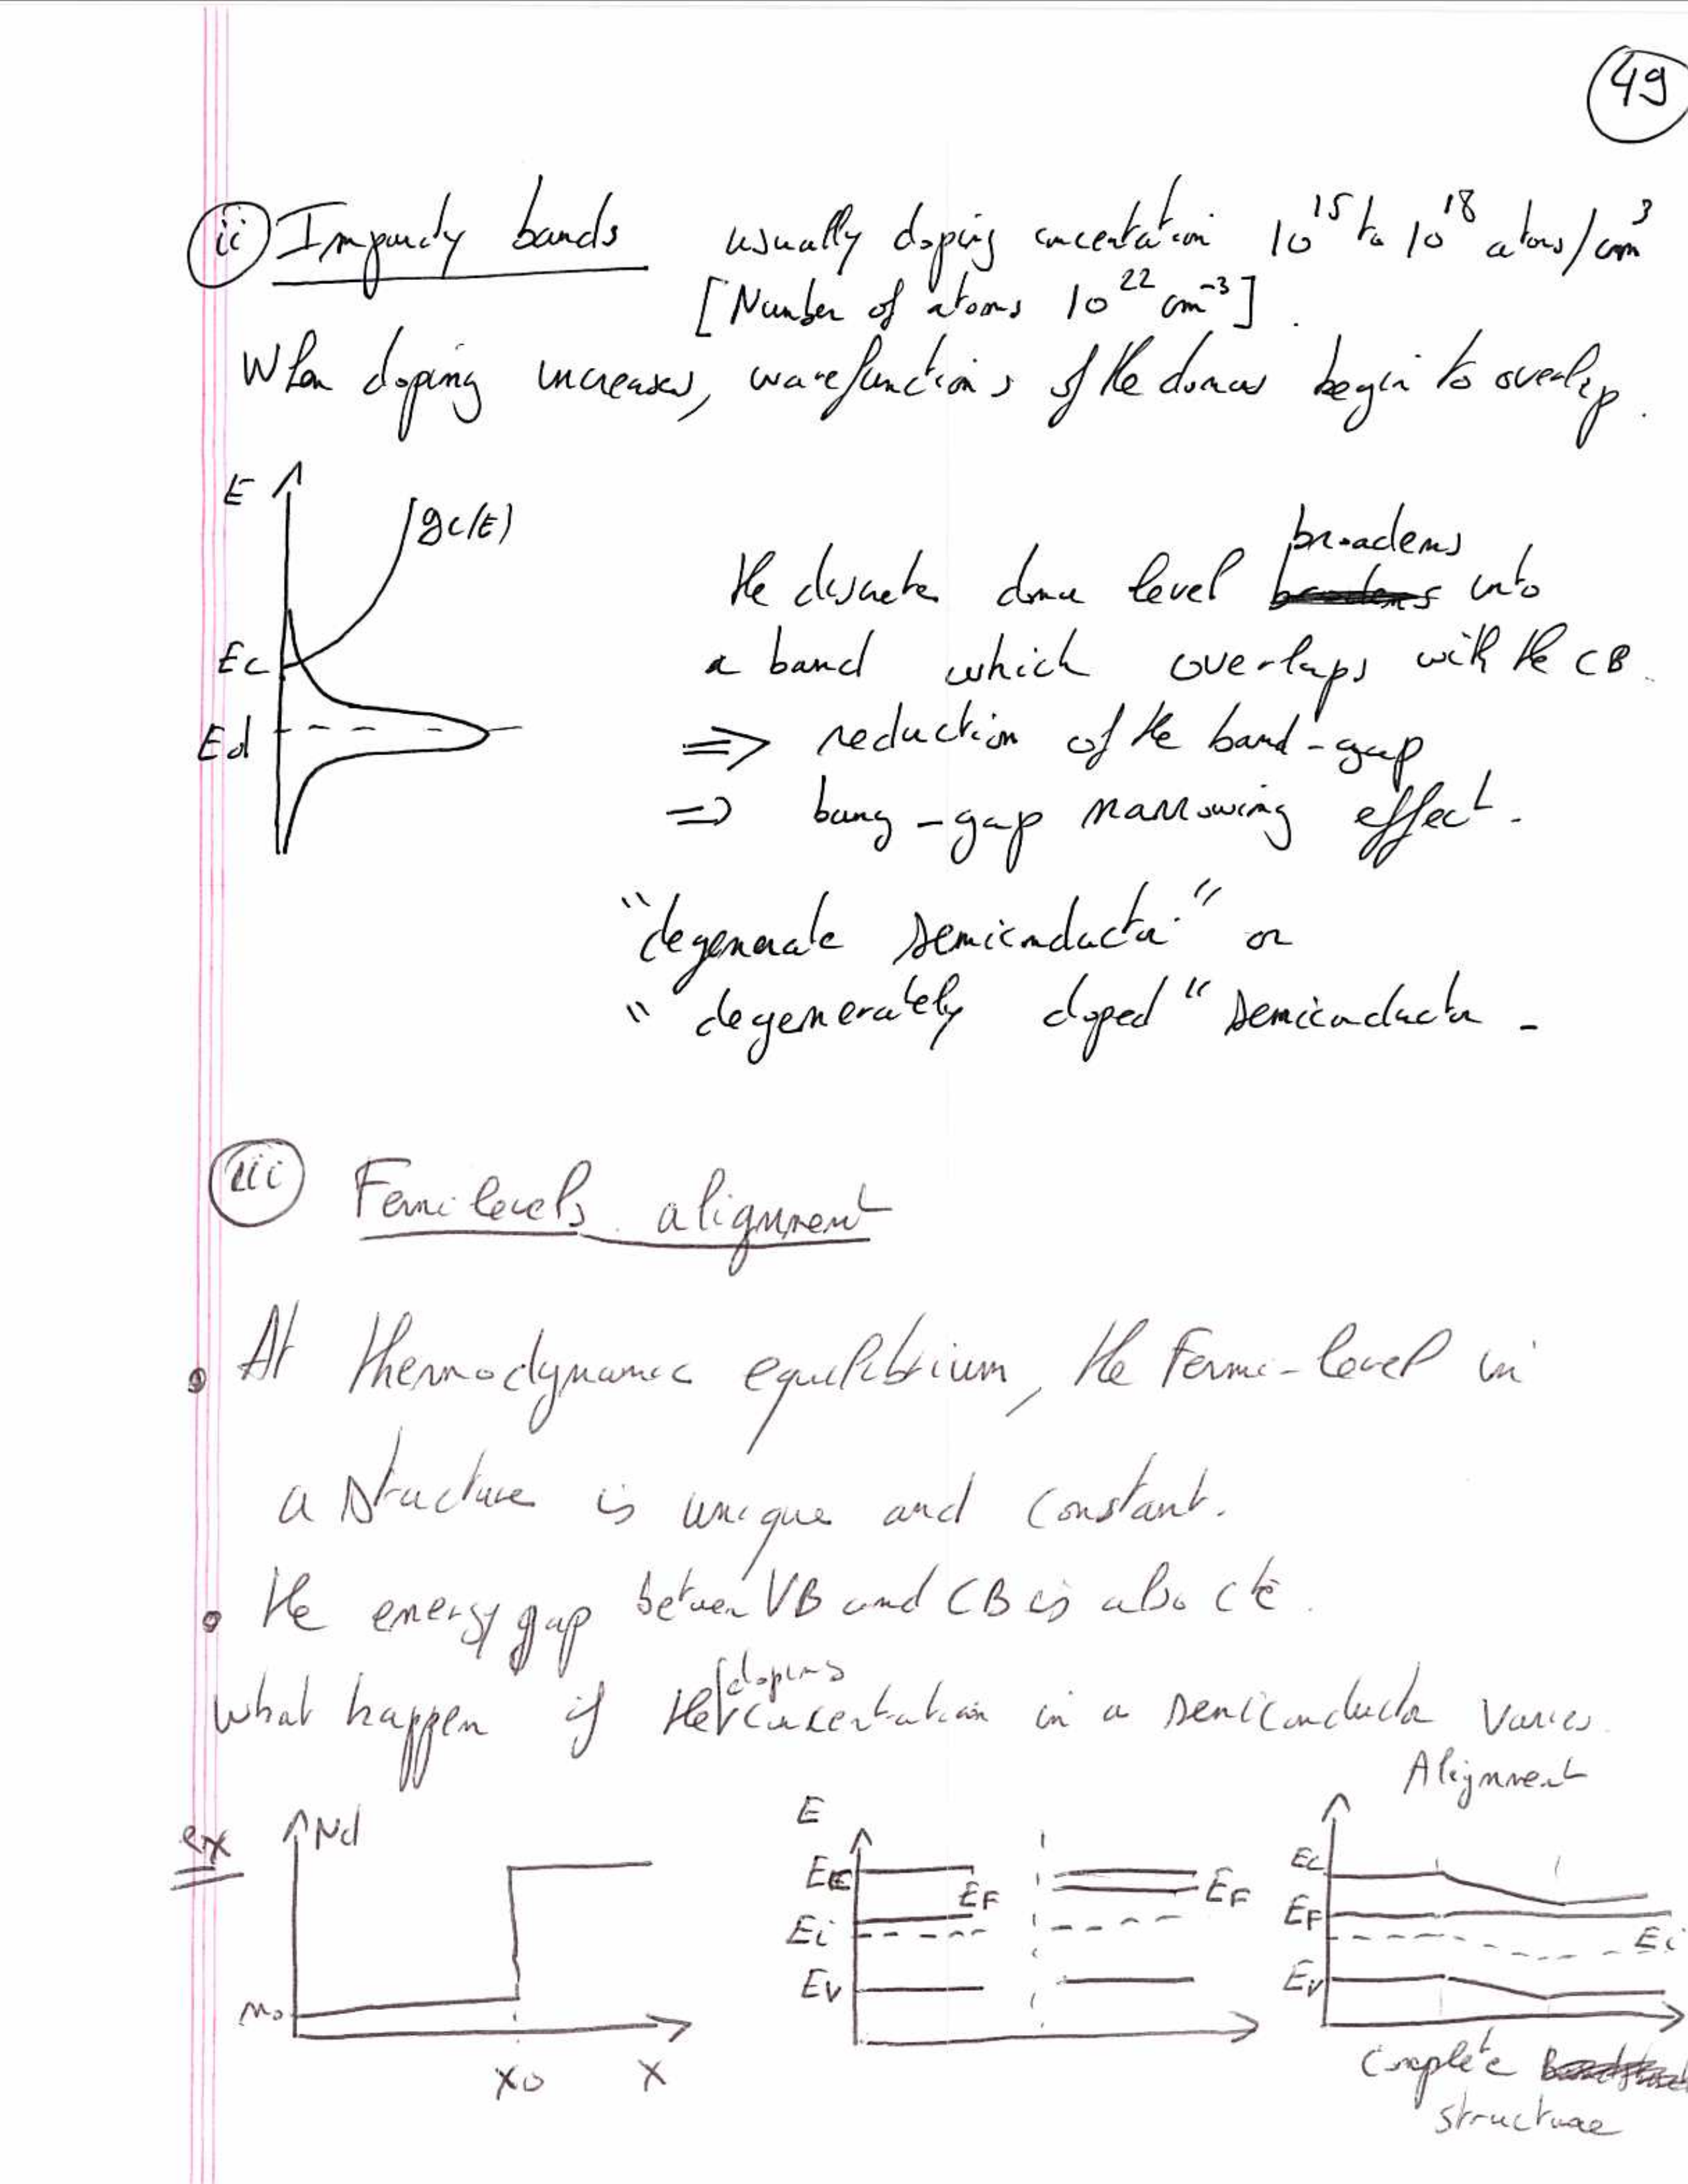 49
ii Impurity bands usually doping concentration 10^15 to 10^18 atoms/cm^3
[Number of atoms 10^22 cm^-3].
When doping increases, wavefunctions of the donors begin to overlap.
E
gc(E)
Ec
Ed
the discrete donor level broadens into
a band which overlaps with the CB.
=> reduction of the band-gap
=> bang-gap narrowing effect.
"degenerate semiconductor" or
"degenerately doped" semiconductor.
iii Fermi levels alignment
• At thermodynamic equilibrium, the Fermi-level in
a structure is unique and constant.
• the energy gap between VB and CB is also cte.
What happen if the doping concentration in a semiconductor varies.
ex
Nd
n0
x0
X
E
Ec
EF
Ei
Ev
EF
Alignment
Ec
EF
Ei
Ev
Complete
structure